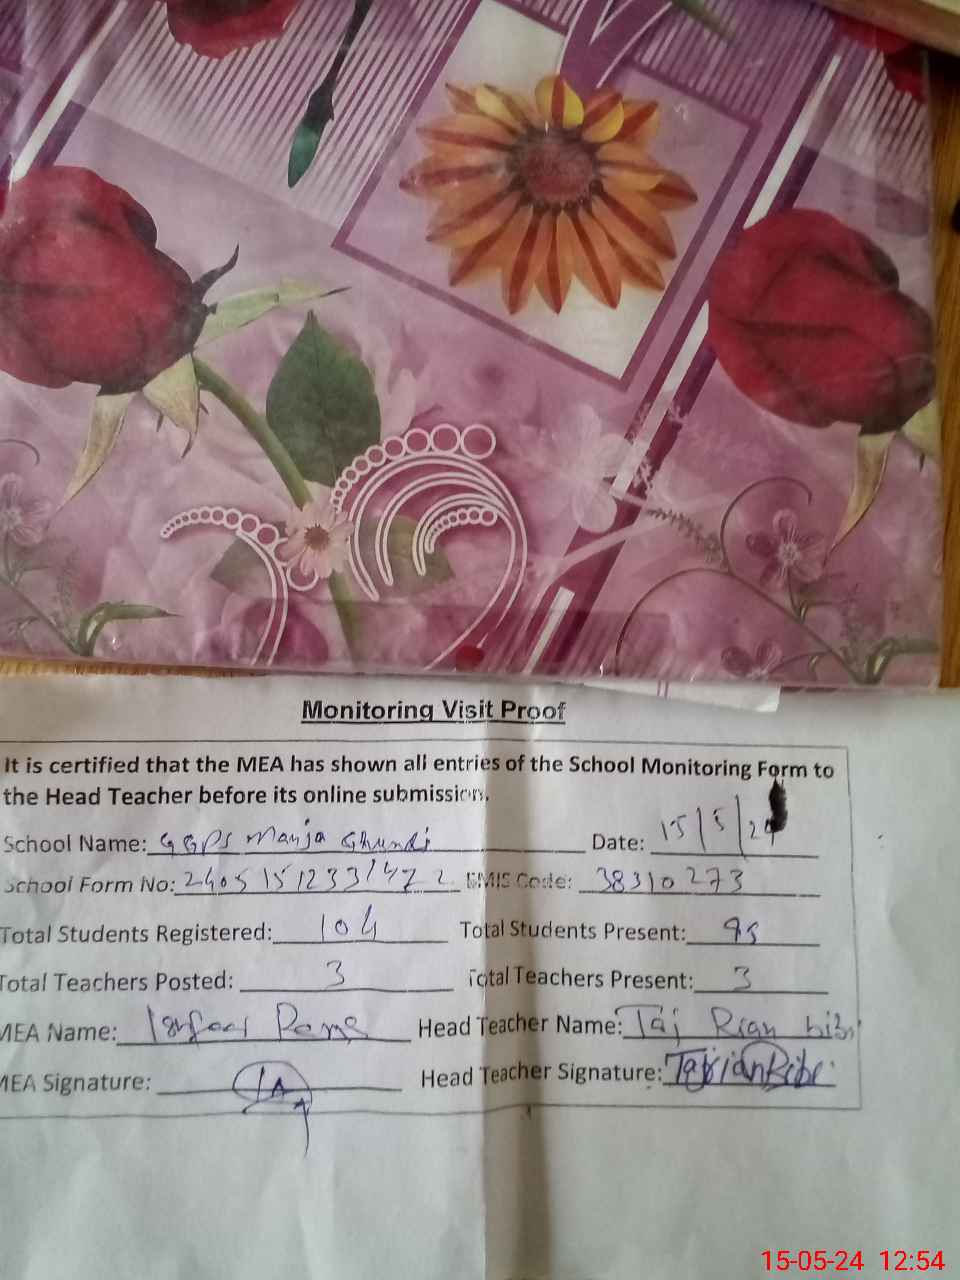 Monitoring Visit Proof
It is certified that the MEA has shown all entries of the School Monitoring Form to
the Head Teacher before its online submission.
School Name: GGPS Manja Ghundi Date: 15/5/24
School Form No: EMIS Code: 38310273
Total Students Registered: 104 Total Students Present: 95
Total Teachers Posted: 3 Total Teachers Present: 3
MEA Name: Head Teacher Name: Taj Rian bibi
MEA Signature: Head Teacher Signature: Bibi
15-05-24 12:54